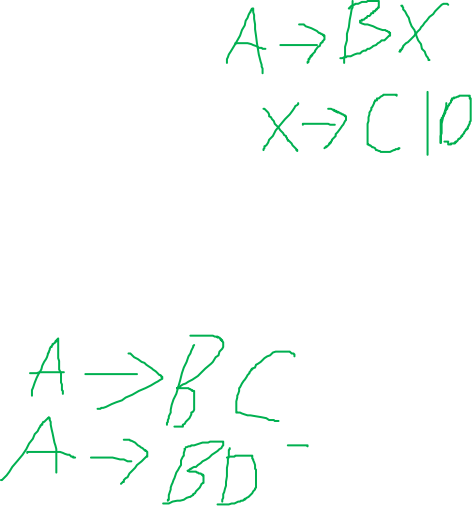 A → BX
X → C | D
A → BC
A → BD -